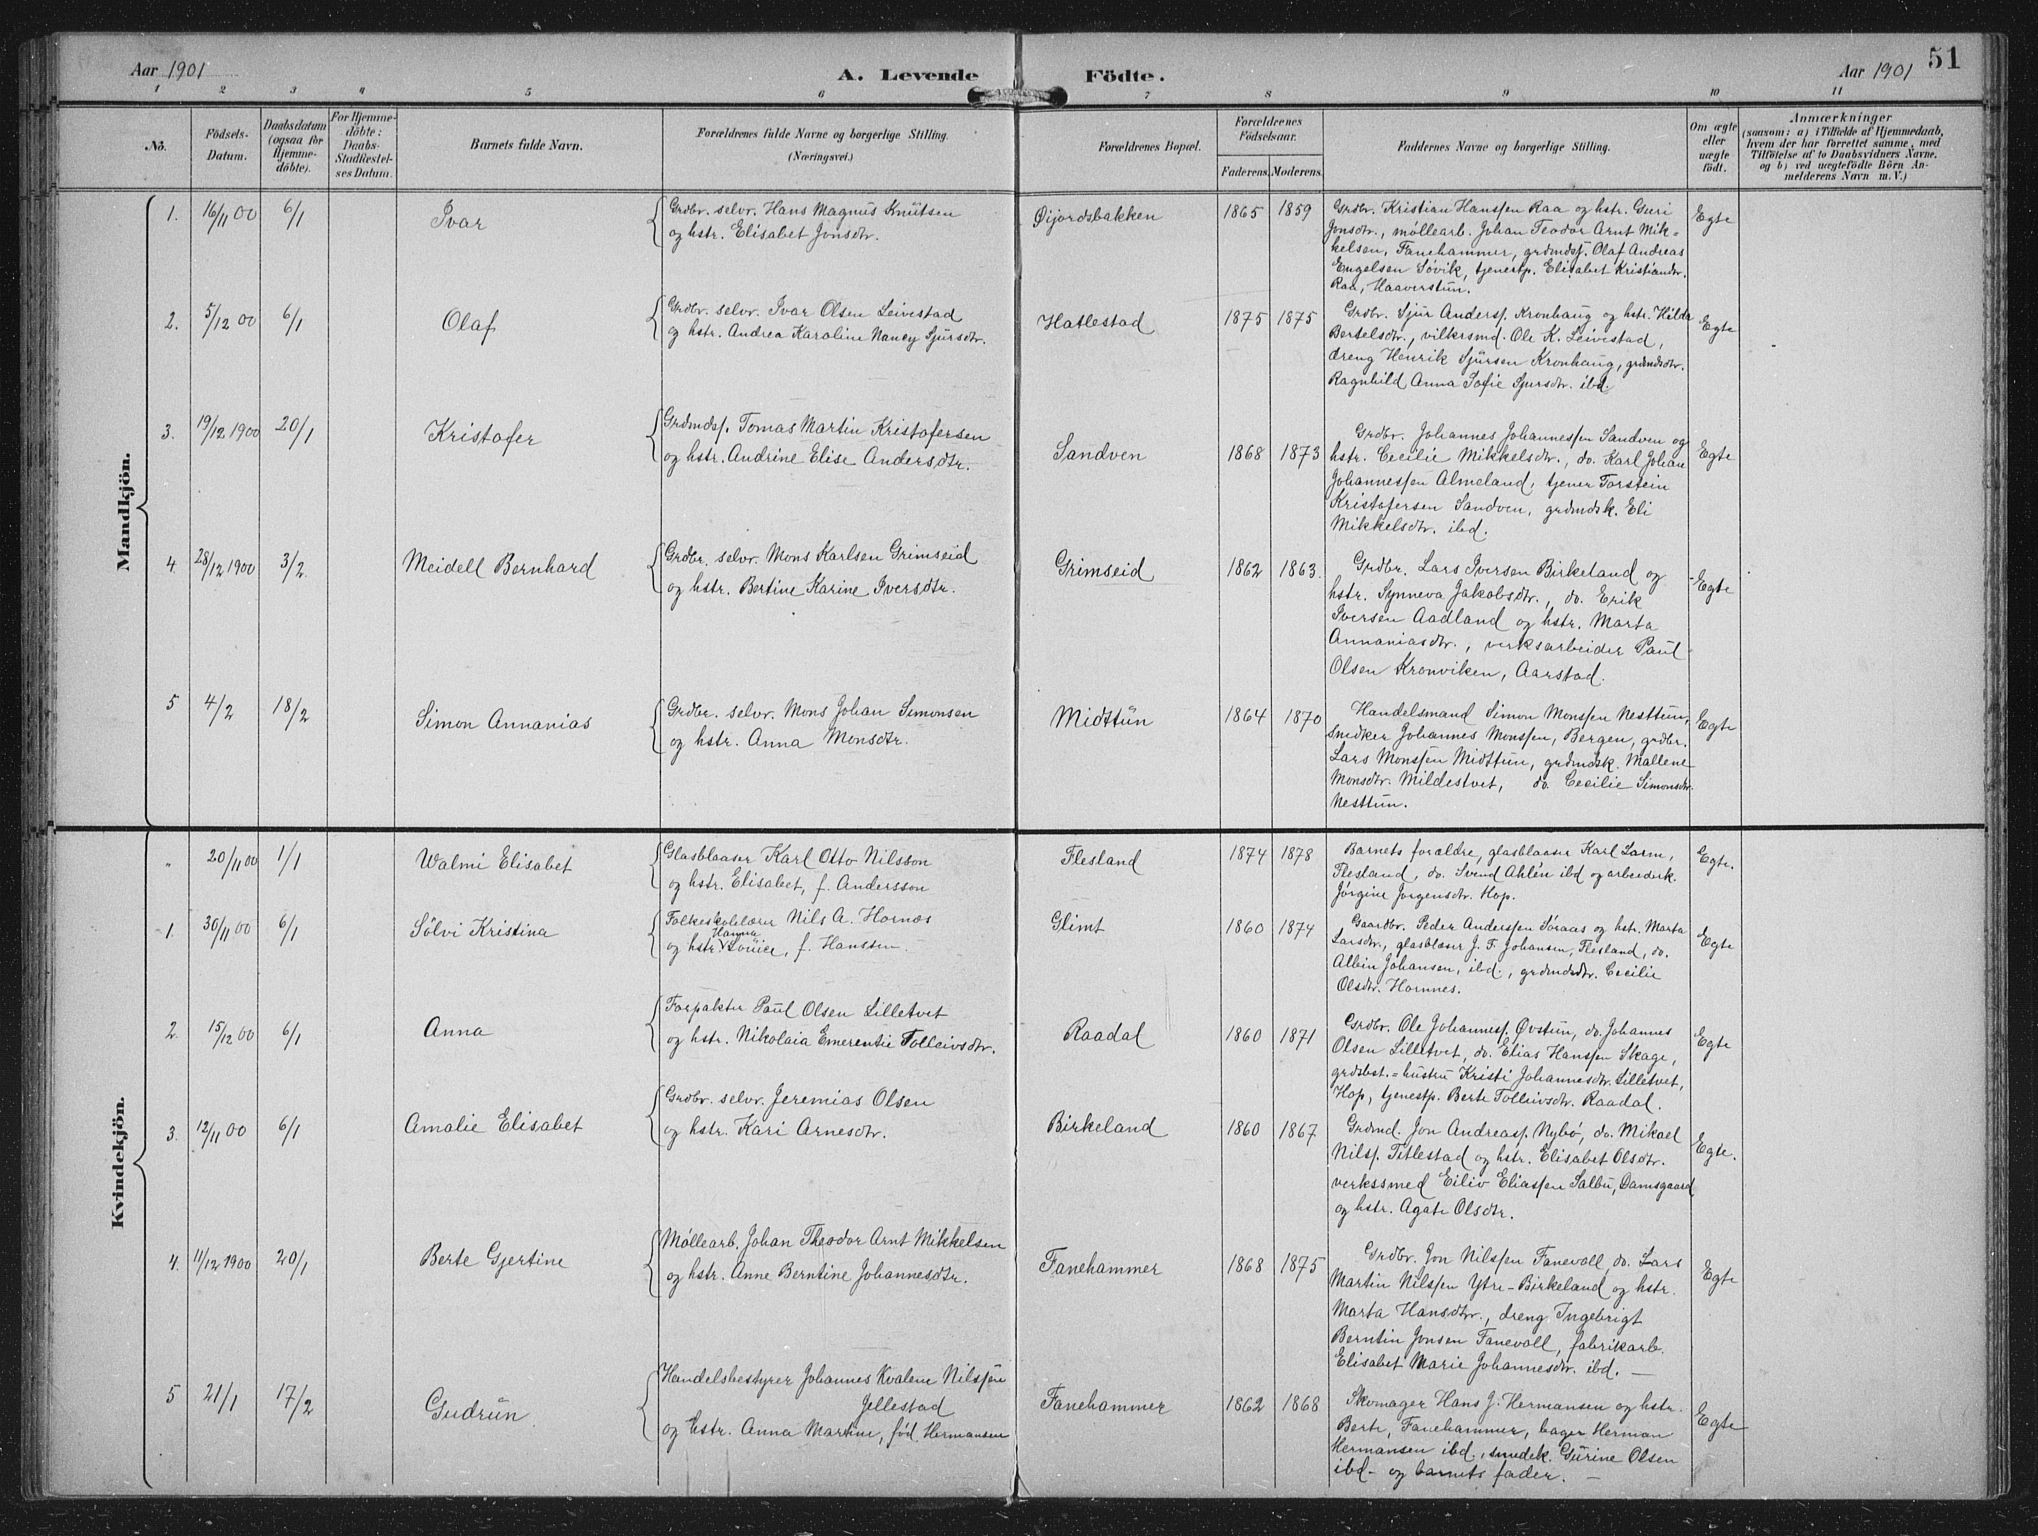 Aar 1901
A. Levende Födte.
Aar 1901
51
1 2 3 4 5 6 7 8 9 10 11
No.
Födsels-
Datum.
Daabsdatum
(ogsaa for
Hjemme-
döbte).
For Hjemme-
döbte:
Daabs-
Stadfæstel-
ses Datum.
Barnets fulde Navn.
Forældrenes fulde Navne og borgerlige Stilling.
(Næringsvei.)
Forældrenes Bopæl.
Forældrenes
Födselsaar.
Faderens. Moderens.
Faddernes Navne og borgerlige Stilling.
Om ægte
eller
uægte
født.
Anmærkninger
(saasom: a) i Tilfælde af Hjemmedaab,
hvem der har forrettet samme, med
Tilföielse af to Daabsvidners Navne,
og b) ved uægtefödte Börn An-
melderens Navn m. V.)
Mandkjön.
1. 16/11 00 6/1 Ivar
Grdbr. selvr. Hans Magnus Knutsen
og hstr. Elisabet Jonsdtr.
Øijordsbakken 1865 1859
Grdbr. Kristian Hanssen Raa og hstr. Guri
Jonsdtr., møllearb. Johan Teodor Arnt Mik-
kelsen, Fanehammer, grdmdsf. Olaf Andreas
Engelsen Søvik, tjenestp. Elisabet Kristiandr.
Raa, Haaverstun.
Egte
2. 5/12 00 6/1 Olaf
Grdbr. selvr. Ivar Olsen Leivestad
og hstr. Andrea Karoline Nancy Sjursdtr.
Hatlestad 1875 1875
Grdbr. Sjur Andersf. Kronhaug og hstr. Hilda
Bertelsdtr., vilkrsmd. Ole K. Leivestad,
dreng Henrik Sjursen Kronhaug, grdmdsdtr.
Ragnhild Anna Sofie Sjursdtr. ibd.
Egte
3. 19/12 1900 20/1 Kristofer
Grdmdsf. Tomas Martin Kristofersen
og hstr. Andrine Elise Andersdtr.
Sandven 1868 1873
Grdbr. Johannes Johannessen Sandven og
hstr. Cecilie Mikkelsdtr., do. Karl Johan
Johannessen Almeland, tjener Torstein
Kristofersen Sandven, grdmdsk. Eli
Mikkelsdtr. ibd.
Egte
4. 28/12 1900 3/2 Meidell Bernhard
Grdbr. selvr. Mons Karlsen Grimseid
og hstr. Bertine Karine Iversdtr.
Grimseid 1862 1863.
Grdbr. Lars Iversen Birkeland og
hstr. Synneva Jakobsdtr., do. Erik
Iversen Aadland og hstr. Marta
Annaniasdtr., verksarbeider Paul
Olsen Kronviken, Aarstad.
Egte
5 4/2 18/2 Simon Annanias
Grdbr. selvr. Mons Johan Simonsen
og hstr. Anna Monsdtr.
Midttun 1864 1870
Handelsmand Simon Monssen Nesttun,
snedker Johannes Monssen, Bergen, grdbr.
Lars Monssen Midttun, grdmdsk. Mallene
Monsdtr. Mildestvet, do. Cecilie Simonsdtr.
Nesttun.
Egte
Kvindekjön.
" 20/11 00 1/1 Walmi Elisabet
Glasblaaser Karl Otto Nilsson
og hstr. Elisabet, f. Andersson
Flesland 1874 1878
Barnets forældre, glasblaaser Karl Larm,
Flesland, do. Svend Ahlén ibd og arbeidersk.
Jørgine Jørgensdtr. Hop.
Egte.
1. 30/11 00 6/1 Sölvi Kristina
Folkeskolelærer Nils A. Hornæs
og hstr. Hanna Louise, f. Hanssen
Glimt 1860 1874
Gaardbr. Peder Anderssen Søraas og hstr. Marta
Larsdtr., glasblæser J. F. Johansen, Flesland, do.
Albin Johansen, ibd., grdmdsdtr. Cecilie
Olsdtr. Hornnes.
Egte
2. 15/12 00 6/1 Anna
Forpakter Paul Olsen Lilletvet
og hstr. Nikolaia Emerentie Tolleivsdtr.
Raadal 1860 1871
Grdbr. Ole Johannesf. Øvstun, do. Johannes
Olsen Lilletvet, do. Elias Hanssen Skage,
grdbst.=hustru Kristi Johannesdtr. Lilletvet,
Hop, tjenestp. Berte Tolleivsdtr. Raadal.
Egte
3. 12/11 00 6/1 Amalie Elisabet
Grdbr. selvr. Jeremias Olsen
og hstr. Kari Arnesdtr.
Birkeland 1860 1867
Grdmd. Jon Andreasf. Nybø, do. Mikael
Nilsf. Titlestad og hstr. Elisabet Olsdtr.
verkssmed Eiliv Eliassen Salbu, Damsgaard
og hstr. Agate Olsdtr.
Egte.
4. 11/12 1900 20/1 Berte Gjertine
Møllearb. Johan Theodor Arnt Mikkelsen
og hstr. Anne Berntine Johannesdtr.
Fanehammer 1868 1875
Grdbr. Jon Nilssen Fanevoll, do. Lars
Martin Nilssen Ytre-Birkeland og hstr.
Marta Hansdtr., dreng Ingebrigt
Berntin Jonsen Fanevoll, fabrikarb.
Elisabet Marie Johannesdtr. ibd. —
Egte
5 21/1 17/2 Gudrun
Handelsbestyrer Johannes Kvalem Nilssen
Jellestad
og hstr. Anna Martine, fød Hermansen
Fanehammer 1862 1868
Skomager Hans J. Hermansen og hstr.
Berte, Fanehammer, bager Herman
Hermansen ibd., smedek. Gurine Olsen
ibd – og barnets fader. —
Egte